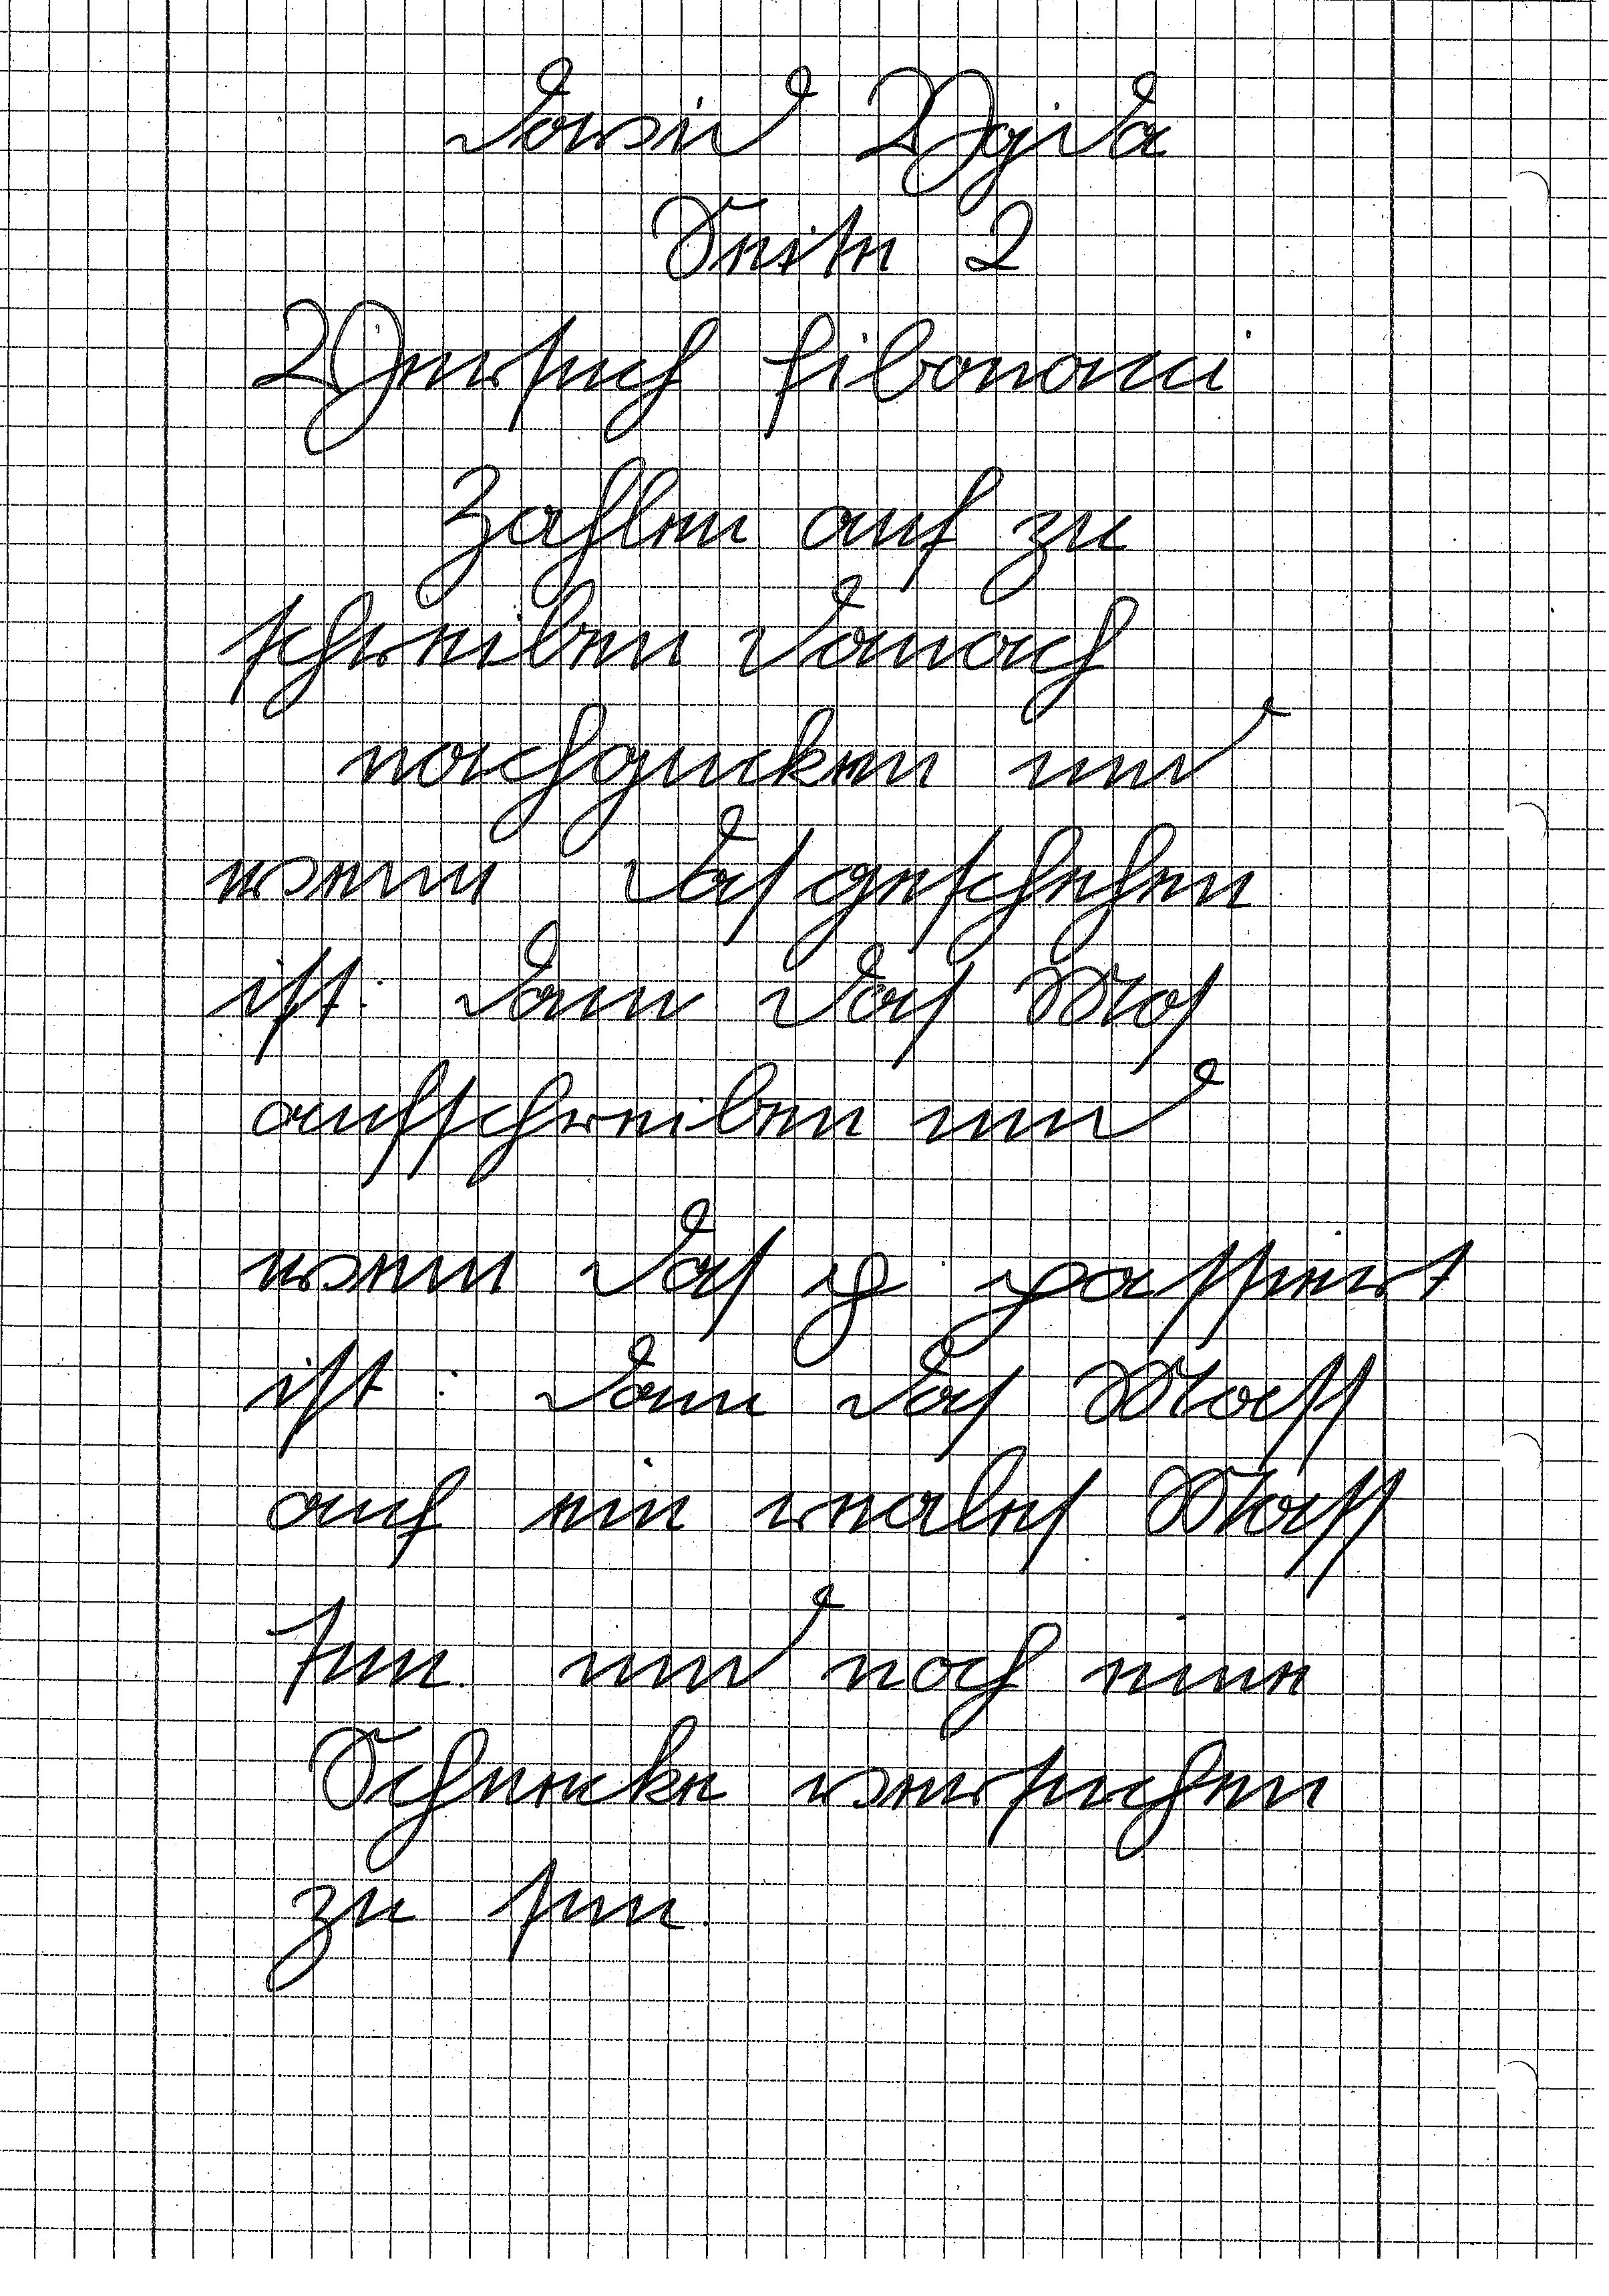 David
Seite 2
Versuch fibonacci
Zahlen auf zu
schreiben danach
nachgucken und
wenn das geschehen
ist: dann das Mas
aufschreiben und
wenn das passiert
ist : dann das Mass
auf ein reales Mass
tun. und noch eine
Schnecke versuchen
zu tun.